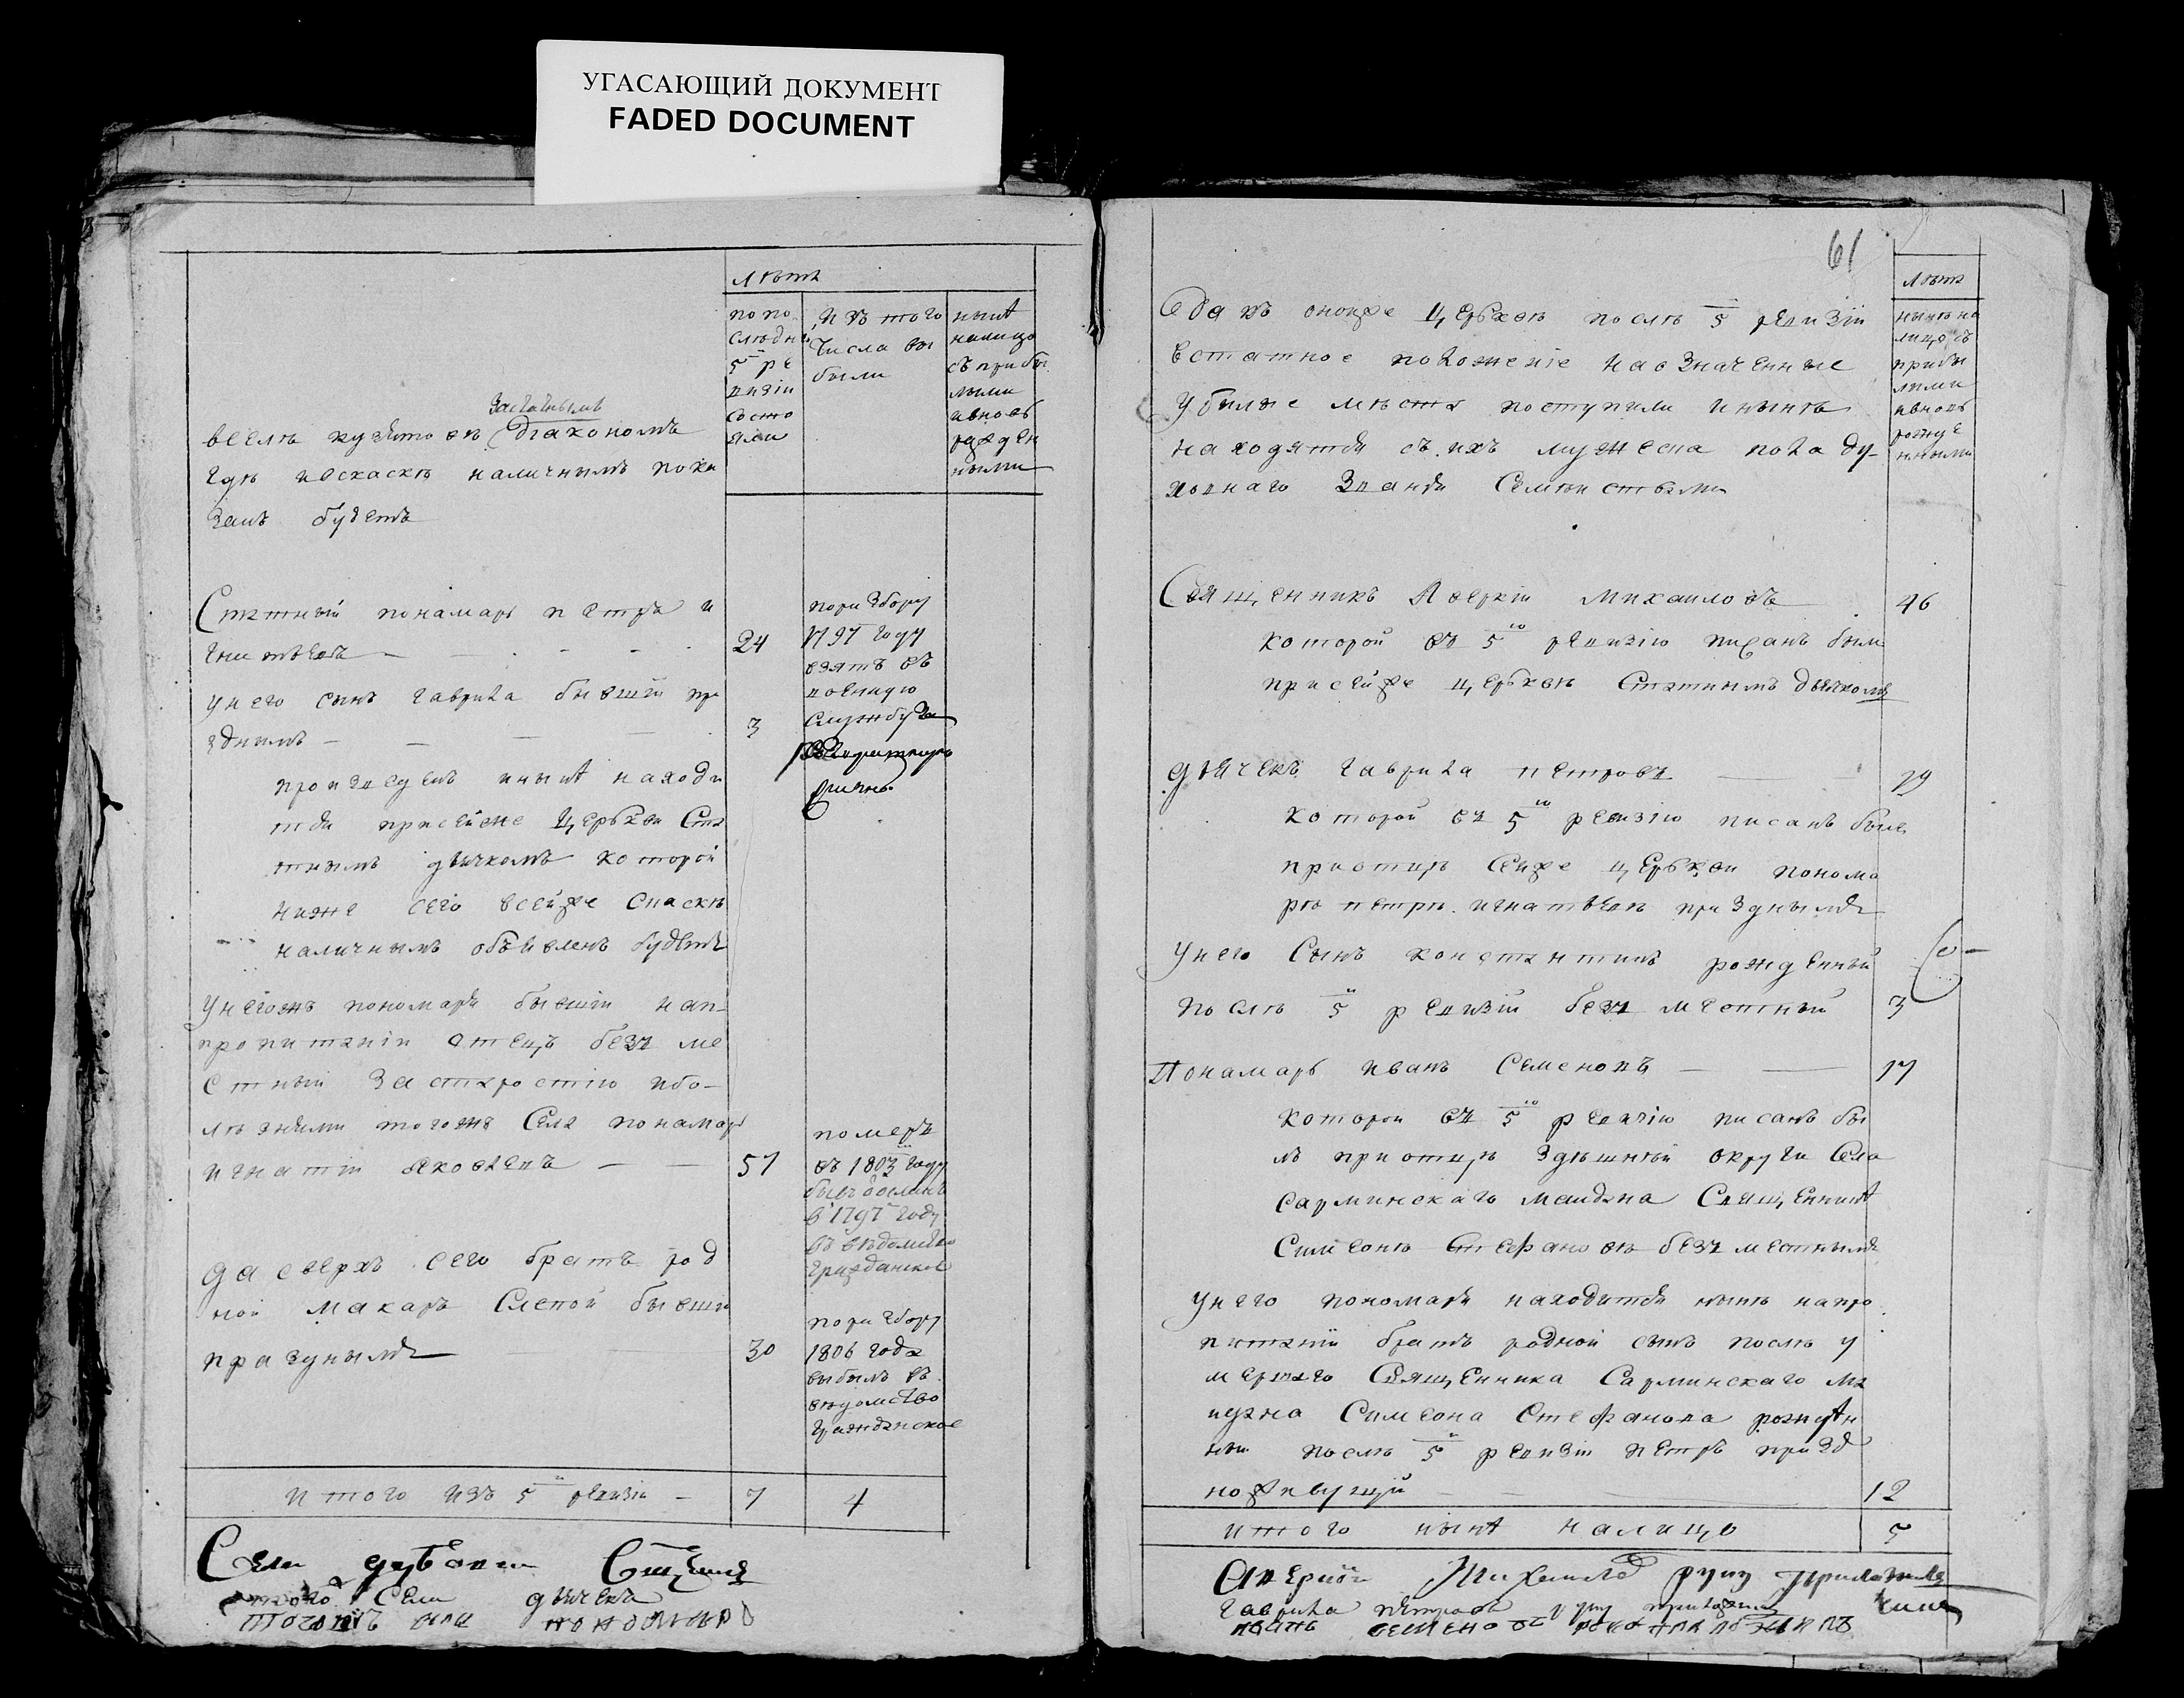 УГАСАЮЩИЙ ДОКУМЕНТ
FADED DOCUMENT
лѣтъ
по по
слѣдне
5 ре
визіи
состо
яли
изъ того
числа вы
были
нынѣ
налицо
съ прибы
лыми
ивновь
рожден
ными
дьякономъ
гдѣ наличнымъ пока
занъ будетъ
Статный понамарь петръ и
гнатьевъ
24
по разбору
1797 году
взятъ въ
военную
службу
у него сынъ гаврила бывшій пра
зднымъ
3
произведенъ нынѣ находи
тся присейже Церькви Ста
тнымъ дьячкомъ которой
ниже сего всейже скаскѣ
наличнымъ объявленъ будетъ
у негожъ пономаря бывшій на
пропитаніи отецъ безъ ме
стный За старостію ибо
лѣзньми тогожъ Села понамарь
игнатій Яковлевъ
57
померъ
въ 1803 году
в 1797 году
да сверхъ сего братъ род
ной макаръ Слепой бывши
празднымъ
30
по разбору
1806 года
выбылъ въ
вѣдомство
Гражданское
итого изъ 5 ревизіи
7
4
Села
того Села дьячекъ
тогожъ села пономарь
61
лѣтъ
нынѣ на
лицо съ
прибы
лыми
ивновь
рожде
нными
Да къ оной же Церькве послѣ 5 ревизіи
встатное положеніе на означенные
убылые мѣста поступили инынѣ
находятся съ ихъ мужеска пола ду-
ховнаго Званія Семействами
Священникъ Аверкій Михаиловъ
46
которой въ 5 ревизію писанъ былъ
присейже церьквѣ Статнымъ дьячкомъ
дьячекъ гаврила петровъ
29
которой въ 5 ревизію писанъ былъ
приотцѣ Сейже церькви понома
рѣ петрѣ игнатьевѣ празднымъ
у него Сынъ константинъ рожденный
послѣ 5 ревизіи безъ местный
3
Понамарь иванъ Семеновъ
17
которой въ 5 ревизію писанъ бы
лъ приотцѣ Здѣшней округи Села
Сарминскаго маидана Священникѣ
Симеонѣ Стефановѣ безъ местнымъ
у него пономаря находится нынѣ напро
питаніи братъ родной сынъ послѣ у
мершаго Священника Сарминскаго ма
идана Симеона Стефанова рожден
ный послѣ 5 ревизіи петръ празд
ноживущій
12
итого нынѣ налицо
5
Аверкій Михаиловъ руку приложилъ
гаврила петровъ руку приложилъ
иванъ семеновъ руку приложилъ